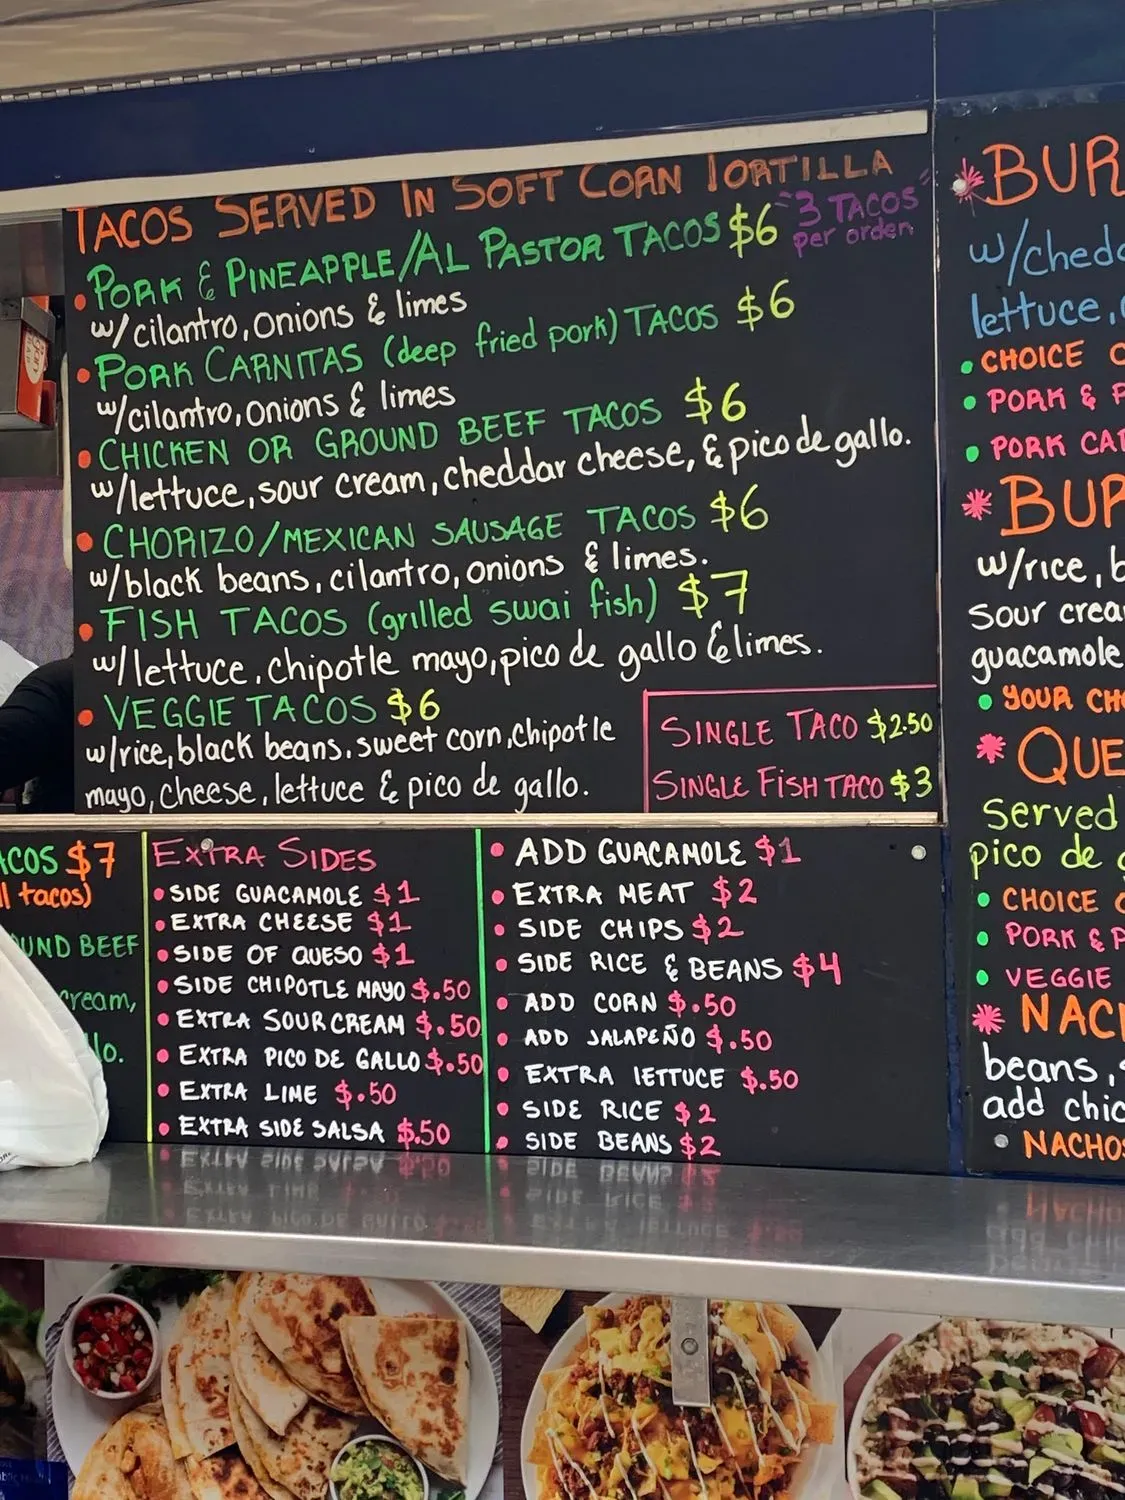 TACOS SERVED IN SOFT CORN TORTILLA
PORK & PINEAPPLE/AL PASTOR TACOS $6 "3 TACOS"
per orden
w/cilantro, onions & limes
PORK CARNITAS (deep fried pork) TACOS $6
w/cilantro, onions & limes
CHICKEN OR GROUND BEEF TACOS $6
w/lettuce, sour cream, cheddar cheese, & pico de gallo.
CHORIZO/MEXICAN SAUSAGE TACOS $6
w/black beans, cilantro, onions & limes.
FISH TACOS (grilled swai fish) $7
w/lettuce, chipotle mayo, pico de gallo & limes.
VEGGIE TACOS $6
w/rice, black beans. sweet corn, chipotle
mayo, cheese, lettuce & pico de gallo.
SINGLE TACO $2.50
SINGLE FISH TACO $3
ACOS $7
ll tacos)
UND BEEF
cream,
lo.
EXTRA SIDES
SIDE GUACAMOLE $1
EXTRA CHEESE $1
SIDE OF QUESO $1
SIDE CHIPOTLE MAYO $.50
EXTRA SOUR CREAM $.50
EXTRA PICO DE GALLO $.50
EXTRA LIME $.50
EXTRA SIDE SALSA $.50
ADD GUACAMOLE $1
EXTRA MEAT $2
SIDE CHIPS $2
SIDE RICE & BEANS $4
ADD CORN $.50
ADD JALAPEÑO $.50
EXTRA LETTUCE $.50
SIDE RICE $2
SIDE BEANS $2
BUR
w/chedd
lettuce,
CHOICE
PORK & P
PORK CAR
BUR
w/rice, b
sour crea
guacamole
YOUR CHO
QUE
served
pico de g
CHOICE
PORK & P
VEGGIE
NACH
beans,
add chic
NACHOS